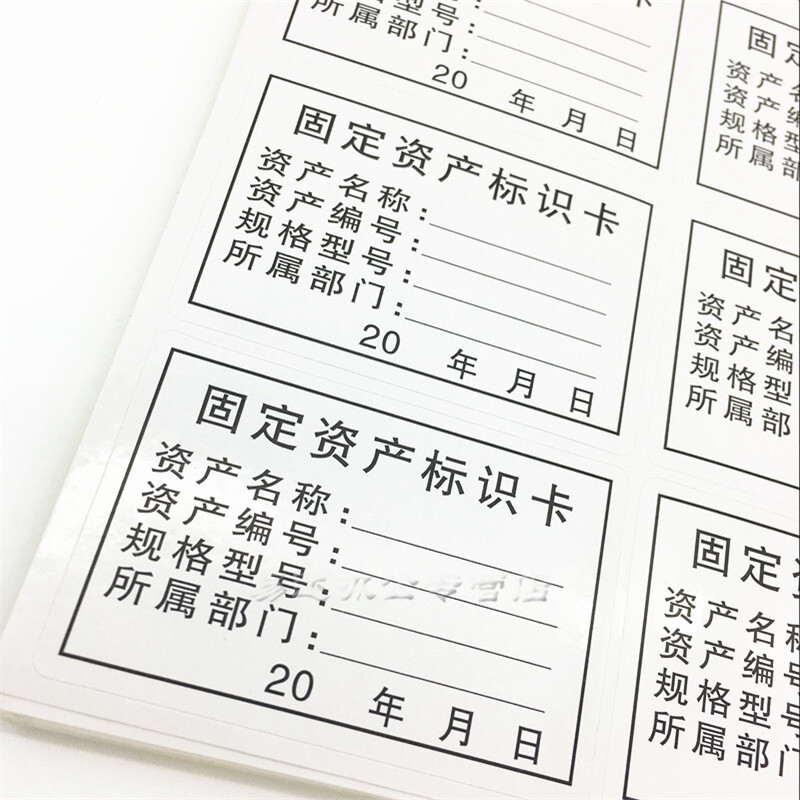 卡
型号:
所属部门:
20 年 月 日
固定资产标识卡
资产名称:
资产编号:
规格型号:
所属部门:
20 年 月 日
固定资产标识卡
资产名称:
资产编号:
规格型号:
所属部门:
20 年 月 日
固定
资产名
资产编
规格型
所属部
固定
资产名
资产编
规格型
所属部
固定
资产名称
资产编号
规格型号
所属部门